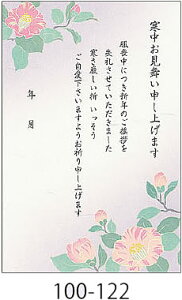 寒中お見舞い申し上げます
服喪中につき新年のご挨拶を
失礼させていただきました
寒さ厳しい折 いっそう
ご自愛下さいますようお祈り申し上げます
年 月
100-122